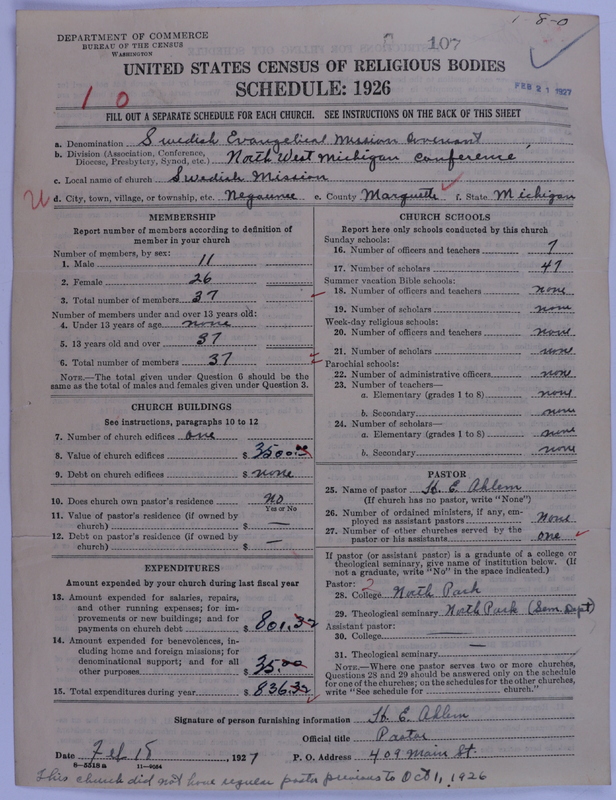 1-8-0
DEPARTMENT OF COMMERCE
BUREAU OF THE CENSUS
WASHINGTON
107
UNITED STATES CENSUS OF RELIGIOUS BODIES
SCHEDULE: 1926
FEB 21 1927
1 0
FILL OUT A SEPARATE SCHEDULE FOR EACH CHURCH. SEE INSTRUCTIONS ON THE BACK OF THIS SHEET
a. Denomination Swedish Evangelical Mission Covenant
b. Division (Association, Conference, Diocese, Presbytery, Synod, etc.) North West Michigan Conference
c. Local name of church Swedish Mission
d. City, town, village, or township, etc. Negaunee e. County Marquette f. State Michigan
MEMBERSHIP
Report number of members according to definition of
member in your church
Number of members, by sex:
1. Male 11
2. Female 26
3. Total number of members 37
Number of members under and over 13 years old:
4. Under 13 years of age none
5. 13 years old and over 37
6. Total number of members 37
NOTE.—The total given under Question 6 should be the
same as the total of males and females given under Question 3.
CHURCH BUILDINGS
See instructions, paragraphs 10 to 12
7. Number of church edifices one
8. Value of church edifices $ 3500.00
9. Debt on church edifices $ none
10. Does church own pastor's residence No
Yes or No
11. Value of pastor's residence (if owned by
church) $ —
12. Debt on pastor's residence (if owned by
church) $ —
EXPENDITURES
Amount expended by your church during last fiscal year
13. Amount expended for salaries, repairs,
and other running expenses; for im-
provements or new buildings; and for
payments on church debt $ 801.32
14. Amount expended for benevolences, in-
cluding home and foreign missions; for
denominational support; and for all
other purposes $ 35.00
15. Total expenditures during year $ 836.32
CHURCH SCHOOLS
Report here only schools conducted by this church
Sunday schools:
16. Number of officers and teachers 7
17. Number of scholars 47
Summer vacation Bible schools:
18. Number of officers and teachers none
19. Number of scholars none
Week-day religious schools:
20. Number of officers and teachers none
21. Number of scholars none
Parochial schools:
22. Number of administrative officers none
23. Number of teachers—
a. Elementary (grades 1 to 8) none
b. Secondary none
24. Number of scholars—
a. Elementary (grades 1 to 8) none
b. Secondary none
PASTOR
25. Name of pastor H. E. Ahlem
(If church has no pastor, write "None")
26. Number of ordained ministers, if any, em-
ployed as assistant pastors None
27. Number of other churches served by the
pastor or his assistants one
If pastor (or assistant pastor) is a graduate of a college or
theological seminary, give name of institution below. (If
not a graduate, write "No" in the space indicated.)
Pastor: ?
28. College North Park
29. Theological seminary North Park (Sem. Dept)
Assistant pastor:
30. College —
31. Theological seminary —
NOTE.—Where one pastor serves two or more churches,
Questions 28 and 29 should be answered only on the schedule
for one of the churches; on the schedules for the other churches,
write "See schedule for church."
Signature of person furnishing information H. E. Ahlem
Official title Pastor
Date Feb 15, 1927 P. O. Address 409 Main St.
6-5318a 11-9034
This church did not have regular pastor previous to Oct 1, 1926